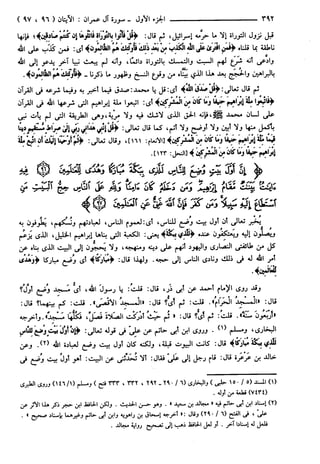 ٣٩٢ الجزء الأول - سورة آل عمران : الآيتان ( ٩٦ ، ٩٧ )
قبل نزول التوراة إلا ما حرّمه إسرائيل، ثم قال: ﴿قُلْ فَأْتُوا بِالتَّوْرَاةِ فَاتْلُوهَا إِن كُنتُمْ صَادِقِينَ﴾، فإنها
ناطقة بما قلناه ﴿فَمَنِ افْتَرَى عَلَى اللَّهِ الْكَذِبَ مِن بَعْدِ ذَلِكَ فَأُولَئِكَ هُمُ الظَّالِمُونَ﴾ أي: فمن كذب على الله
وادعى أنه شرع لهم السبت والتمسك بالتوراة دائمًا، وأنه لم يبعث نبيًا آخر يدعو إلى الله
بالبراهين والحجج بعد هذا الذي بيّناه من وقوع النسخ وظهور ما ذكرنا ـ ﴿فَأُولَئِكَ هُمُ الظَّالِمُونَ﴾.
ثم قال تعالى: ﴿قُلْ صَدَقَ اللَّهُ﴾ أي: قل يا محمد: صدق فيما أخبر به وفيما شرعه في القرآن
﴿فَاتَّبِعُوا مِلَّةَ إِبْرَاهِيمَ حَنِيفًا وَمَا كَانَ مِنَ الْمُشْرِكِينَ﴾ أي: اتبعوا ملة إبراهيم التي شرعها الله في القرآن
على لسان محمد ﷺ، فإنه الحق الذي لا شك فيه ولا مرية، وهي الطريقة التي لم يأت نبي
بأكمل منها ولا أبين ولا أوضح ولا أتم، كما قال تعالى: ﴿قُلْ إِنَّنِي هَدَانِي رَبِّي إِلَى صِرَاطٍ مُّسْتَقِيمٍ دِينًا
قِيَمًا مِّلَّةَ إِبْرَاهِيمَ حَنِيفًا وَمَا كَانَ مِنَ الْمُشْرِكِينَ﴾ [الأنعام: ١٦١]، وقال تعالى: ﴿ثُمَّ أَوْحَيْنَا إِلَيْكَ أَنِ اتَّبِعْ مِلَّةَ
إِبْرَاهِيمَ حَنِيفًا وَمَا كَانَ مِنَ الْمُشْرِكِينَ﴾ [النحل: ١٢٣].
﴿إِنَّ أَوَّلَ بَيْتٍ وُضِعَ لِلنَّاسِ لَلَّذِي بِبَكَّةَ مُبَارَكًا وَهُدًى لِّلْعَالَمِينَ ﴿٩٦﴾ فِيهِ آيَاتٌ بَيِّنَاتٌ
مَّقَامُ إِبْرَاهِيمَ وَمَن دَخَلَهُ كَانَ آمِنًا وَلِلَّهِ عَلَى النَّاسِ حِجُّ الْبَيْتِ مَنِ
اسْتَطَاعَ إِلَيْهِ سَبِيلًا وَمَن كَفَرَ فَإِنَّ اللَّهَ غَنِيٌّ عَنِ الْعَالَمِينَ ﴿٩٧﴾﴾
يُخبر تعالى أن أول بيت وضع للناس، أي: لعموم الناس، لعبادتهم ونُسُكهم، يَطُوفون به
ويُصلُّون إليه ويَعتكفُون عنده ﴿لَلَّذِي بِبَكَّةَ﴾ يعني: الكعبة التي بناها إبراهيم الخليل، الذي يَزعُم
كل من طائفتي النصارى واليهود أنهم على دينه ومنهجه، ولا يَحجُّون إلى البيت الذي بناه عن
أمر الله له في ذلك ونادى الناس إلى حجه. ولهذا قال: ﴿مُبَارَكًا﴾ أي وُضع مباركا ﴿وَهُدًى
لِّلْعَالَمِينَ﴾.
وقد روى الإمام أحمد عن أبي ذَر، قال: قلتُ: يا رسول الله، أيُّ مَسجِد وُضع أوَّلُ؟
قال: «المسجِد الحَرَامُ». قلت: ثم أيٌّ؟ قال: «المسجِدُ الأقْصَى». قلت: كم بينهما؟ قال:
«أرْبَعُونَ سَنَةً». قلتُ: ثم أيٌّ؟ قال: «ثُم حَيْثُ أدْرَكْت الصَلاةَ فَصَلِّ، فَكُلُّهَا مَسْجِدٌ». وأخرجه
البخاري، ومسلم (١). وروى ابن أبي حاتم عن عليّ في قوله تعالى: ﴿إِنَّ أَوَّلَ بَيْتٍ وُضِعَ لِلنَّاسِ
لَلَّذِي بِبَكَّةَ مُبَارَكًا﴾ قال: كانت البيوت قبله، ولكنه كان أول بيت وضع لعبادة الله (٢). وعن
خالد بن عَرْعَرة قال: قام رجل إلى عَليّ فقال: ألا تُحَدِّثني عن البيت: أهو أولُ بيت وُضع في
(١) المسند (٥/ ١٥٠ حلبي) والبخاري (٦/ ٢٩٠ - ٢٩٢ ، ٣٣٢ ، ٣٣٣ فتح) ومسلم (١/ ١٤٦) وروى الطبري
(٧٤٣٤) قطعة من أوله .
(٢) إسناد ابن أبي حاتم فيه « مجالد بن سعيد » . وهو حسن الحديث . ولكن الحافظ ابن حجر ذكر هذا الأثر عن
علي ، في الفتح (٦/ ٢٩٠) وقال : « أخرجه إسحاق بن راهويه وابن أبي حاتم وغيرهما بإسناد صحيح » .
فلعل له إسنادًا آخر . أو لعل الحافظ ذهب إلى تصحيح رواية مجالد .